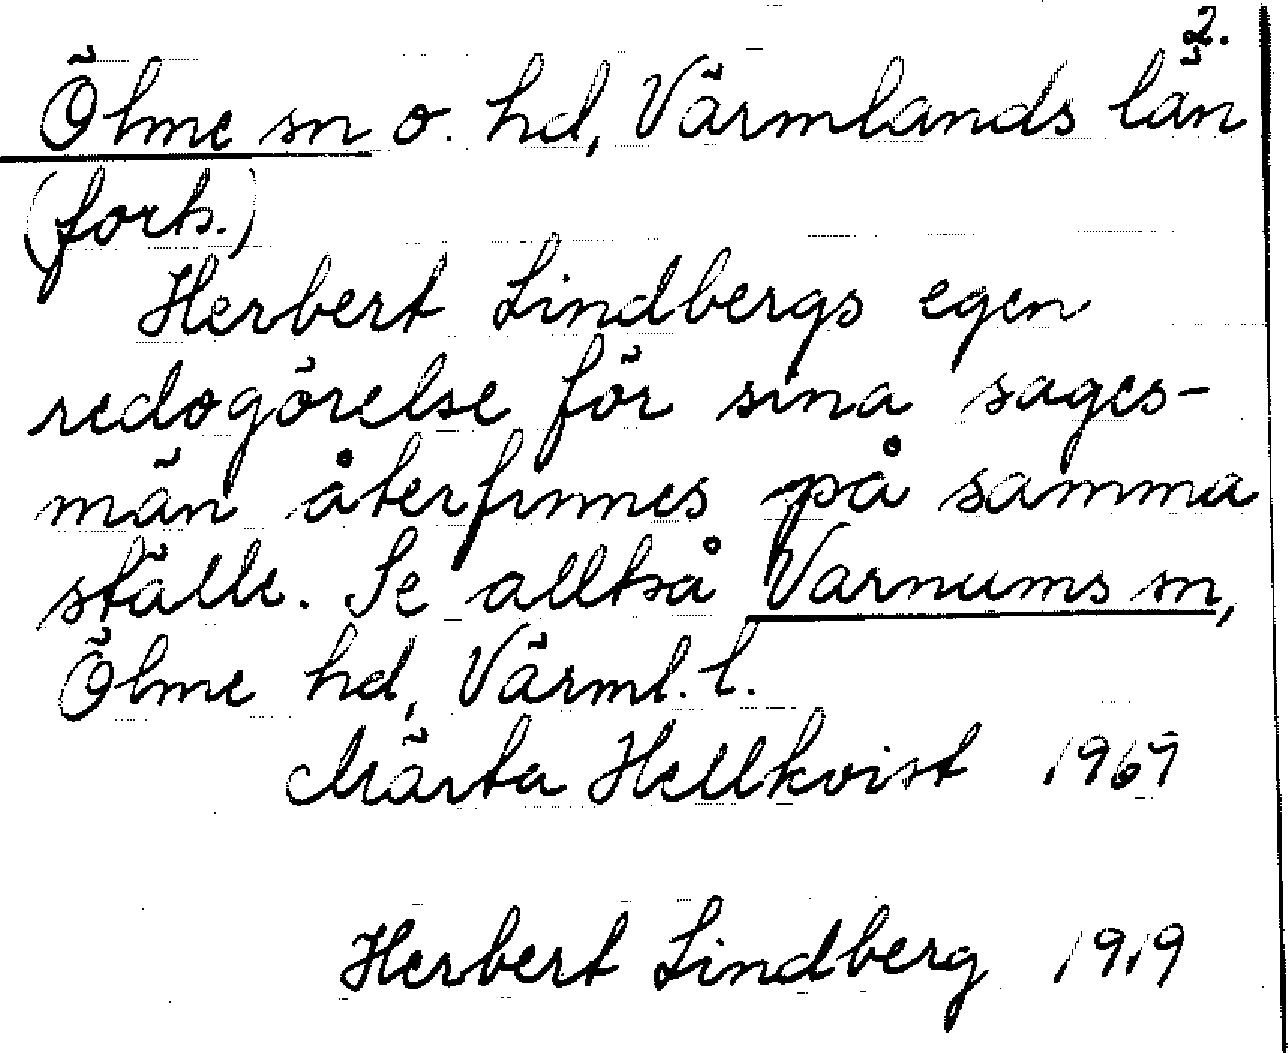 2.
Ölme sn o. hd, Värmlands län
(forts.)
Herbert Lindbergs egen
redogörelse för sina sages-
män återfinnes på samma
ställe. Se alltså Varnums sn,
Ölme hd, Värml. l.
Märta Hellkvist 1967
Herbert Lindberg 1919